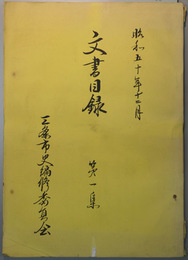 昭和五十年十二月
文書目録
第一集
三条市史編修委員会